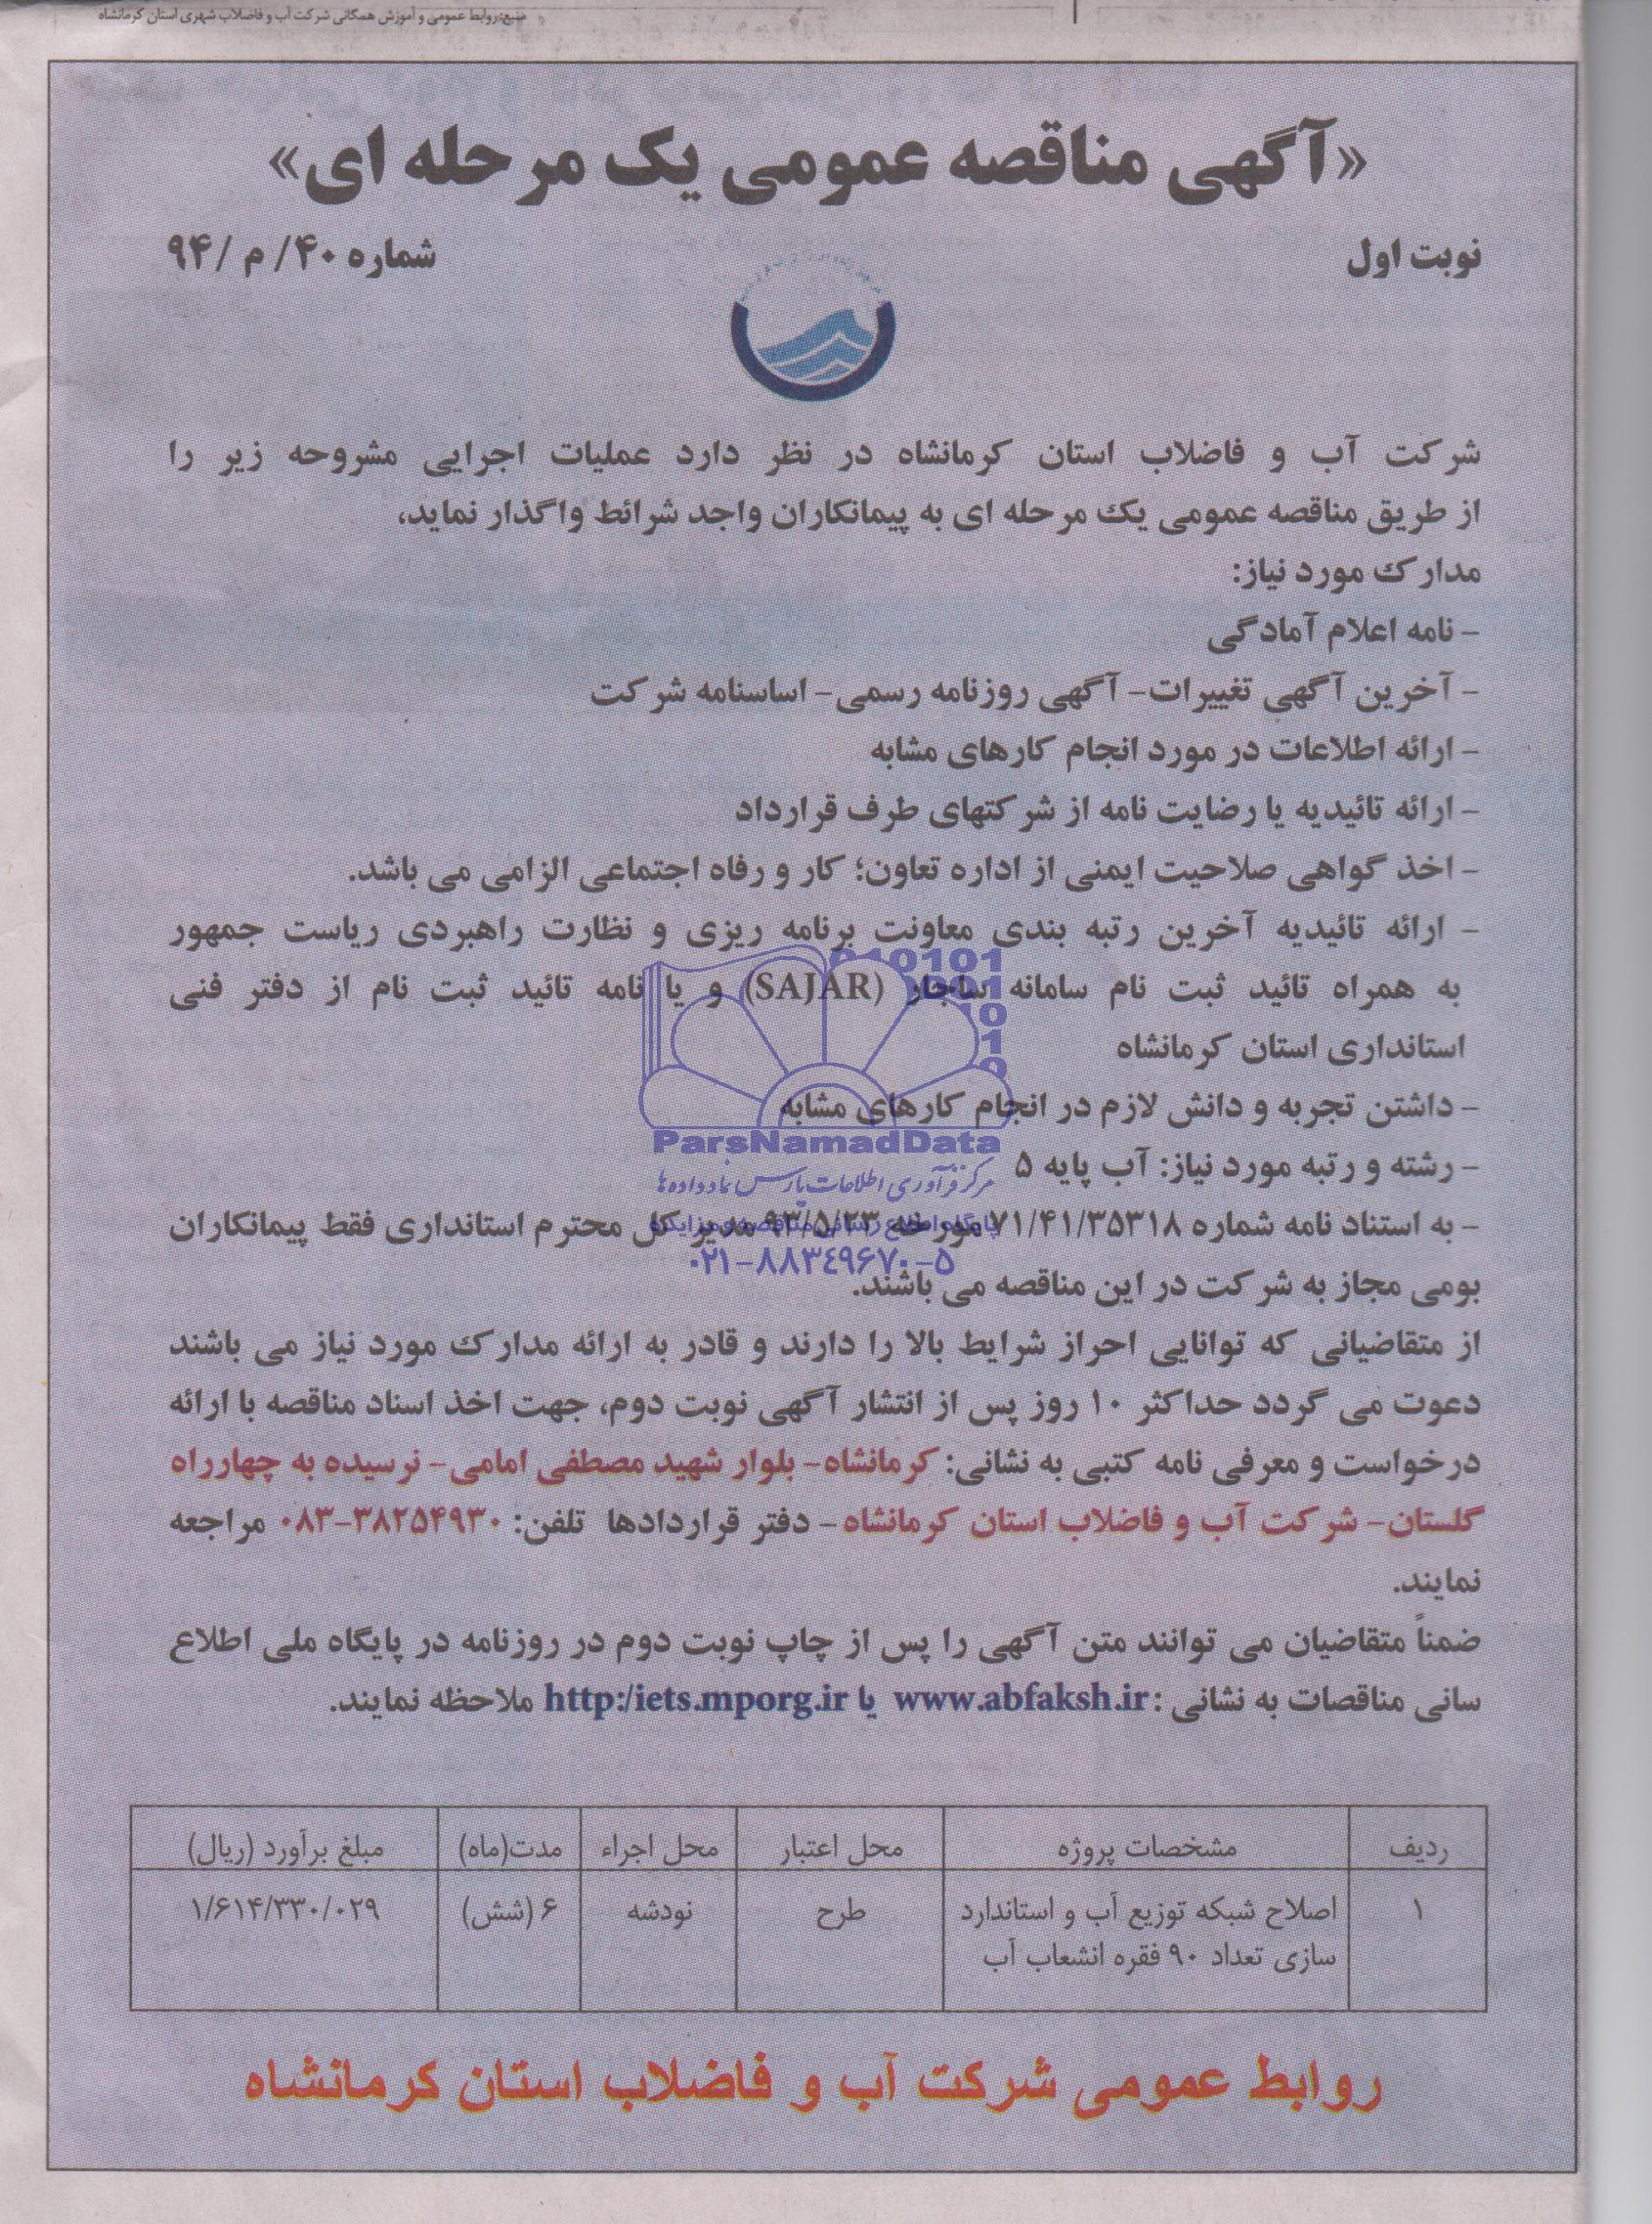 منبع: روابط عمومی و آموزش همگانی شرکت آب و فاضلاب شهری استان کرمانشاه
«آگهی مناقصه عمومی یک مرحله ای»
نوبت اول
شماره ۴۰/ م /۹۴
شرکت آب و فاضلاب استان کرمانشاه در نظر دارد عملیات اجرایی مشروحه زیر را
از طریق مناقصه عمومی یک مرحله ای به پیمانکاران واجد شرائط واگذار نماید،
مدارک مورد نیاز:
- نامه اعلام آمادگی
- آخرین آگهی تغییرات- آگهی روزنامه رسمی- اساسنامه شرکت
- ارائه اطلاعات در مورد انجام کارهای مشابه
- ارائه تائیدیه یا رضایت نامه از شرکتهای طرف قرارداد
- اخذ گواهی صلاحیت ایمنی از اداره تعاون؛ کار و رفاه اجتماعی الزامی می باشد.
- ارائه تائیدیه آخرین رتبه بندی معاونت برنامه ریزی و نظارت راهبردی ریاست جمهور
به همراه تائید ثبت نام سامانه ساجار (SAJAR) و یا نامه تائید ثبت نام از دفتر فنی
استانداری استان کرمانشاه
- داشتن تجربه و دانش لازم در انجام کارهای مشابه
ParsNamadData
- رشته و رتبه مورد نیاز: آب پایه ۵
مرکز فرآوری اطلاعات پارس نماد داده ها
- به استناد نامه شماره ۷۱/۴۱/۳۵۳۱۸ مورخه ۹۳/۵/۲۳ مدیر کل محترم استانداری فقط پیمانکاران
پایگاه اطلاع رسانی مناقصه و مزایده
۰۲۱-۸۸۳۴۹۶۷۰-۵
بومی مجاز به شرکت در این مناقصه می باشند.
از متقاضیانی که توانایی احراز شرایط بالا را دارند و قادر به ارائه مدارک مورد نیاز می باشند
دعوت می گردد حداکثر ۱۰ روز پس از انتشار آگهی نوبت دوم، جهت اخذ اسناد مناقصه با ارائه
درخواست و معرفی نامه کتبی به نشانی: کرمانشاه- بلوار شهید مصطفی امامی- نرسیده به چهارراه
گلستان- شرکت آب و فاضلاب استان کرمانشاه- دفتر قراردادها تلفن: ۳۸۲۵۴۹۳۰-۰۸۳ مراجعه
نمایند.
ضمناً متقاضیان می توانند متن آگهی را پس از چاپ نوبت دوم در روزنامه در پایگاه ملی اطلاع
سانی مناقصات به نشانی :www.abfaksh.ir یا http:/iets.mporg.ir ملاحظه نمایند.
ردیف مشخصات پروژه محل اعتبار محل اجراء مدت(ماه) مبلغ برآورد (ریال)
۱ اصلاح شبکه توزیع آب و استاندارد طرح نودشه ۶ (شش) ۱/۶۱۴/۳۳۰/۰۲۹
سازی تعداد ۹۰ فقره انشعاب آب
روابط عمومی شرکت آب و فاضلاب استان کرمانشاه